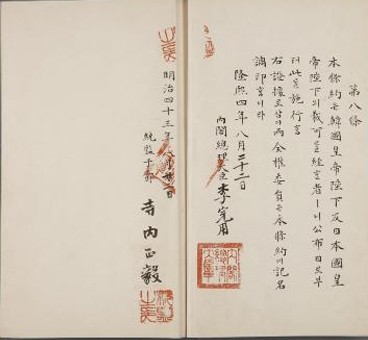 第八條
本條約은韓國皇帝陛下及日本國皇
帝陛下의裁可를經한者ㅣ니公布日로부
터此를施行홈
右證據로삼아兩全權委員은本條約에記名
調印홈이라
隆熙四年八月二十二日
內閣總理大臣李完用
明治四十三年八月廿二日
統監子爵寺内正毅